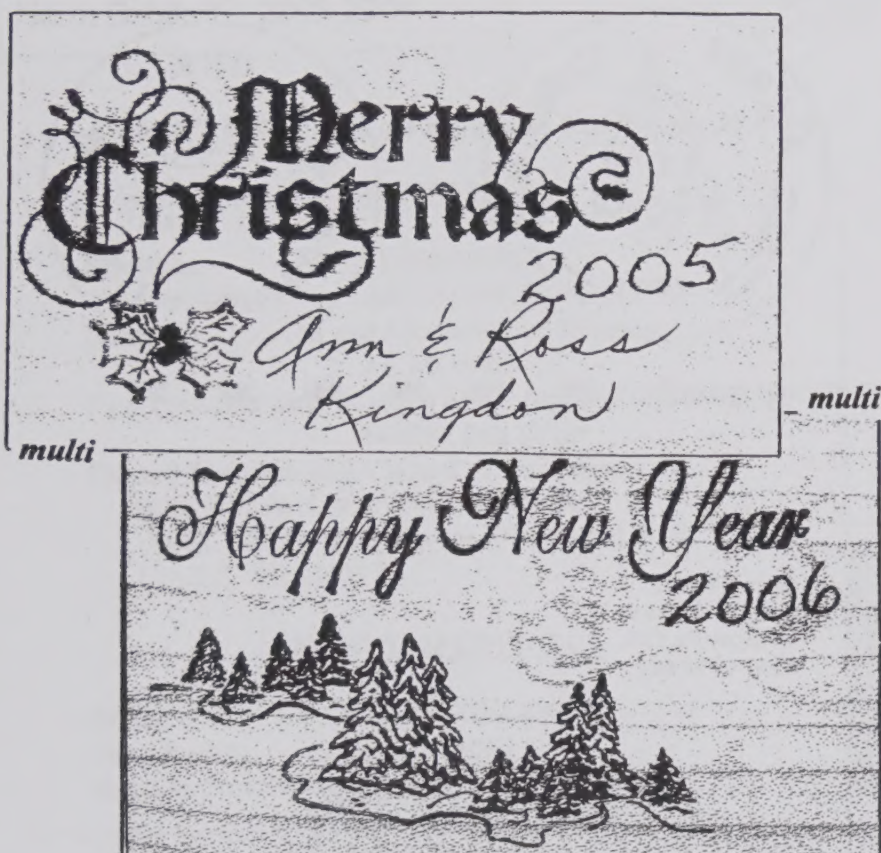 Merry
Christmas
2005
Ann & Ross
Kingdon
multi
multi
Happy New Year
2006